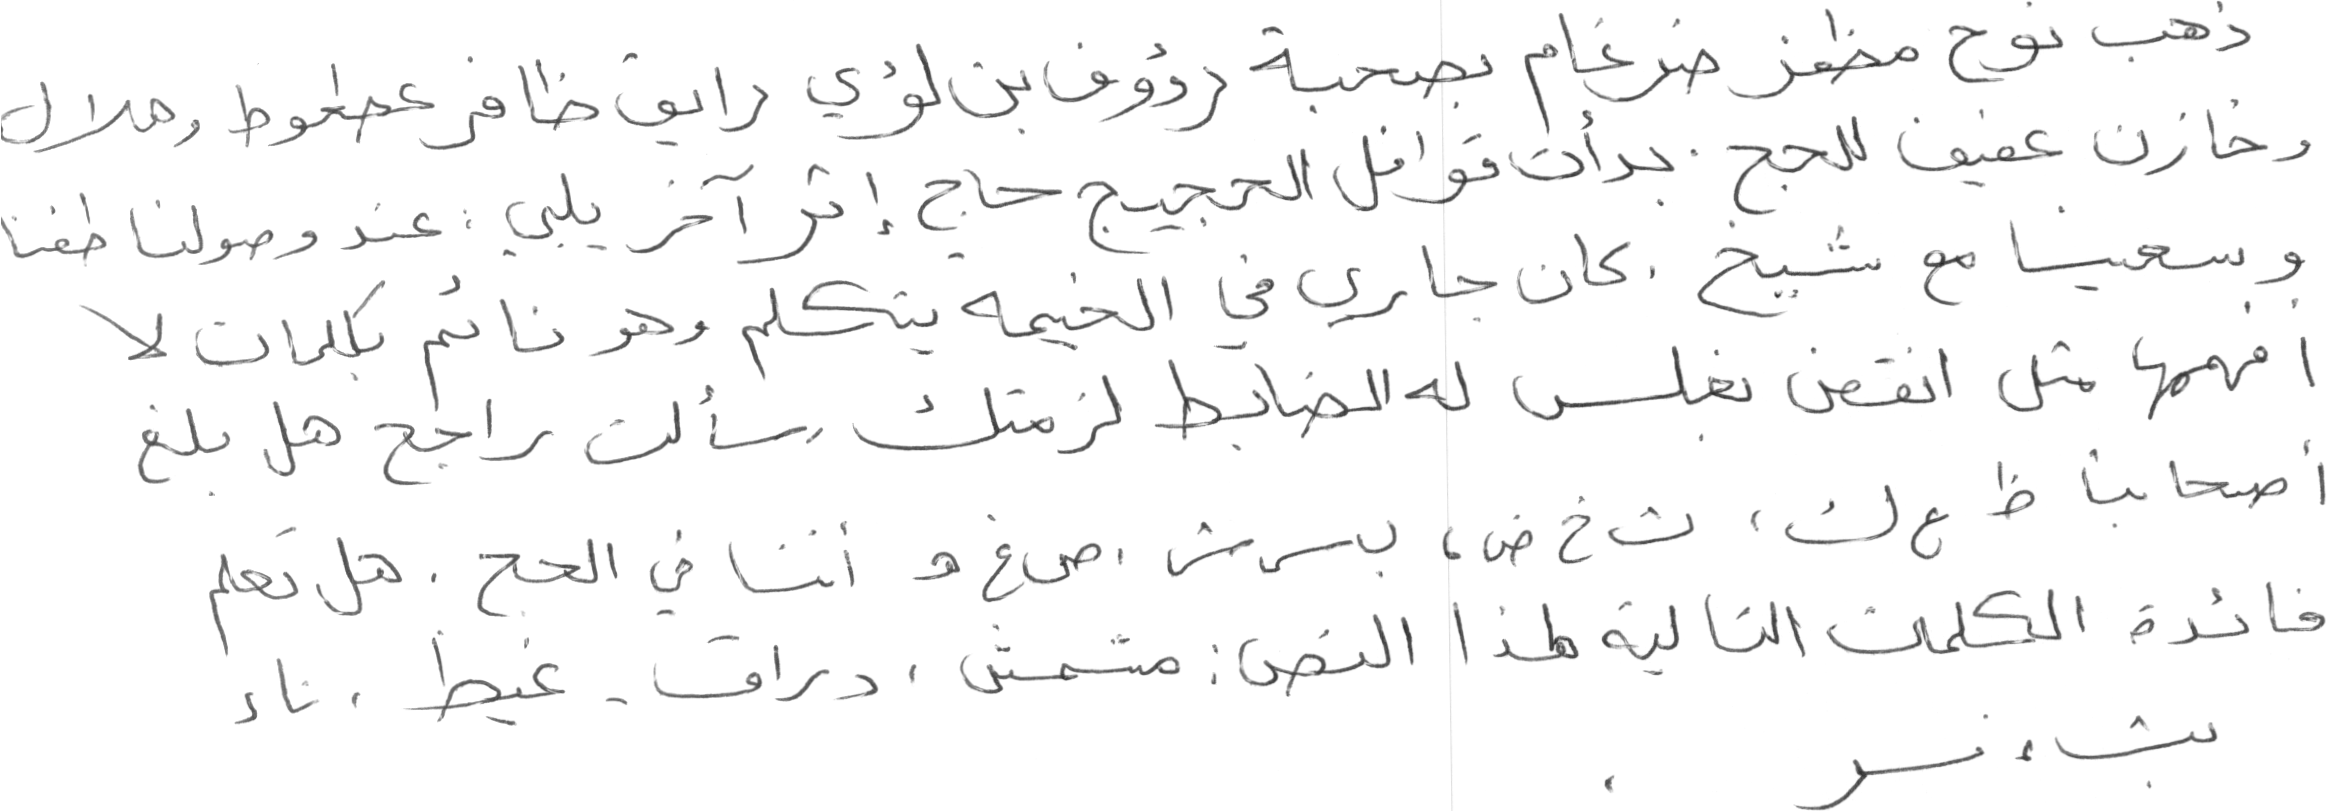 ذهب نوح مظفر ضرغام بصحبة رؤوف بن لؤي رايق ظافر عطعوط وهلال
وخازن عفيف للحج . بدأت قوافل الحجيج حاج إثر آخر يلبي : عند وصولنا طفنا
وسعينا مع شيخ . كان جاري في الخيمه يتكلم وهو نائم بكلمات لا
افهمها مثل انقض نغلس له الضابط لزمتك . سألت راجح هل بلغ
أصحابنا ظ ع ك ، ث خ ض ، ب س ش ، ص غ و أننا في الحج . هل تعلم
فائدة الكلمات التالية لهذا النص : مشمش ، دراق - غيظ ، ناء
بث ، نسر .